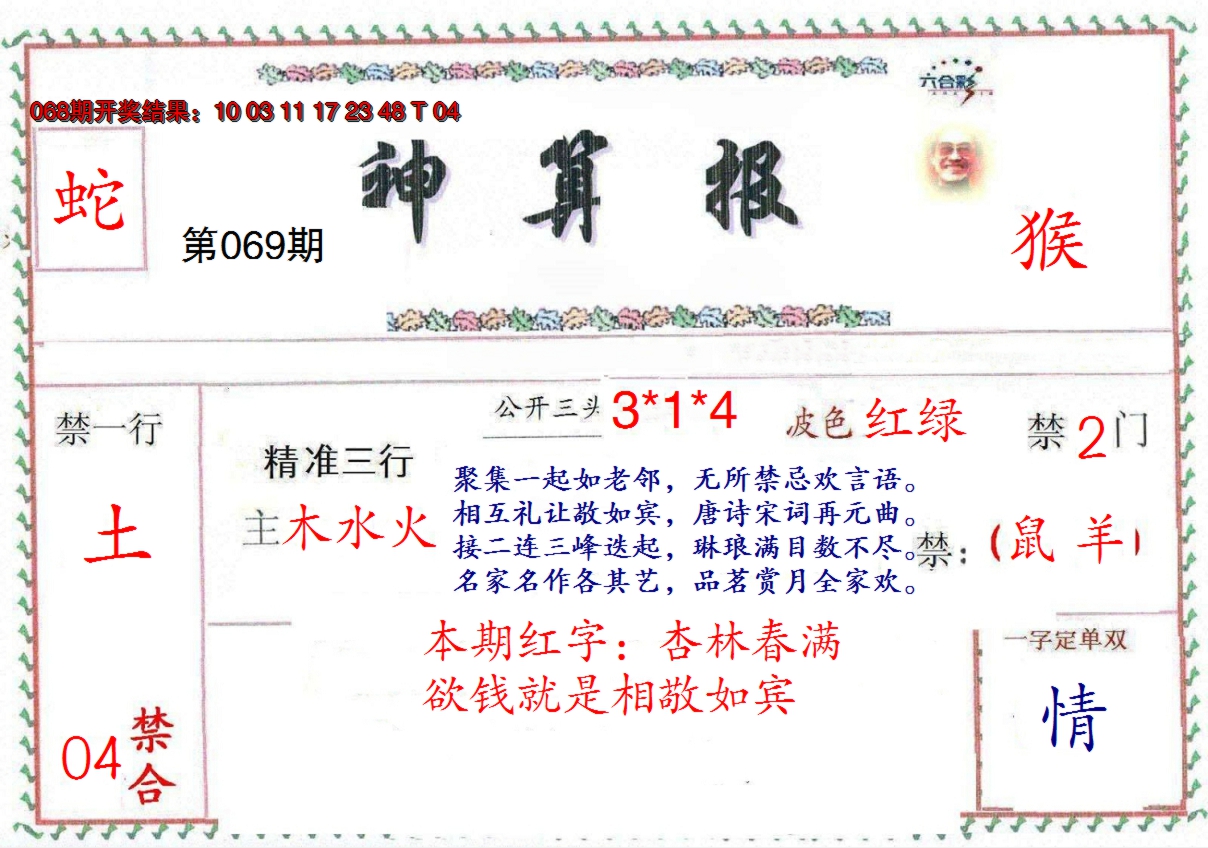 六合彩
068期开奖结果：10 03 11 17 23 48 T 04
神算报
蛇
第069期
猴
禁一行
土
04
禁合
公开三头 3*1*4
波色 红绿
禁2门
精准三行
主木水火
聚集一起如老邻，无所禁忌欢言语。
相互礼让敬如宾，唐诗宋词再元曲。
接二连三峰迭起，琳琅满目数不尽。
名家名作各其艺，品茗赏月全家欢。
禁：（鼠 羊）
本期红字：杏林春满
欲钱就是相敬如宾
一字定单双
情